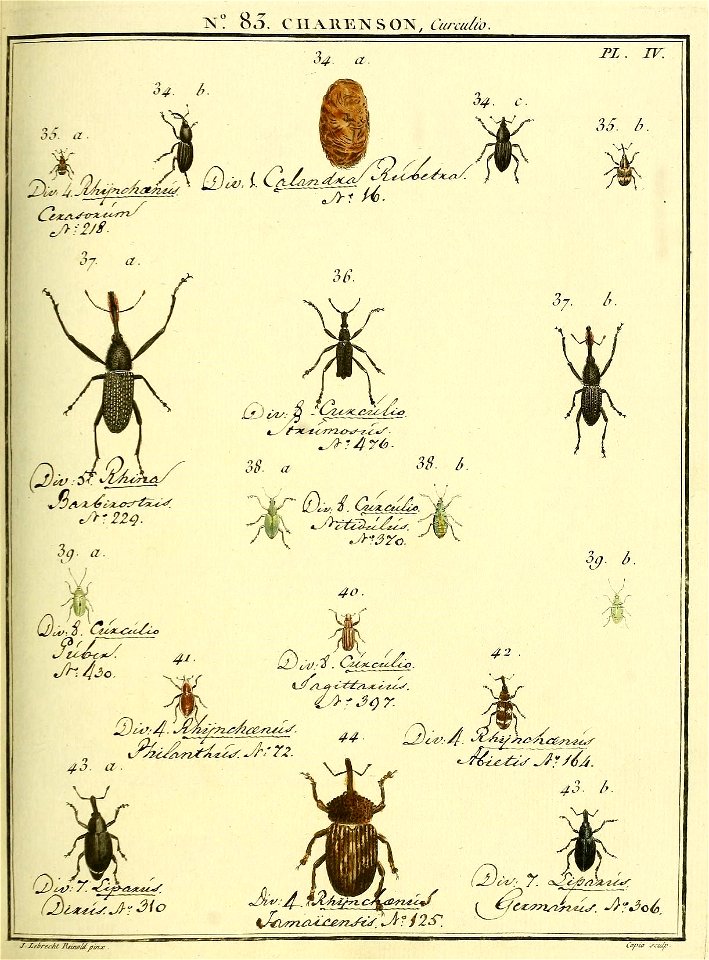 Nº. 83. CHARENSON, Curculio.
PL. IV.
34. a.
34. b.
34. c.
35. a.
35. b.
Div. 4. Rhÿnchænús
Cerasorúm
Nº: 218.
Div. 1. Calandra Rúbetra.
Nº 16.
37. a.
36.
37. b.
Div: 8. Cúrcúlio
Strúmosús.
Nº: 476.
Div: 5. Rhina
Barbirostris.
Nº: 229.
38. a
38. b.
Div: 8. Cúrcúlio
Nitidúlús.
Nº: 370.
39. a.
39. b.
Div: 8. Cúrcúlio
Púber.
Nº: 430.
40.
Div: 8. Cúrcúlio.
Sagittariús.
Nº: 397.
41.
Div: 4. Rhÿnchænús.
Philanthús. Nº: 72.
42.
Div: 4. Rhÿnchænús
Abietis Nº: 164.
43. a.
44.
43. b.
Div: 7. Liparús.
Dirús. Nº: 310
Div: 4. Rhÿnchænús
Jamaicensis. Nº: 125.
Div: 7. Liparús
Germanús. Nº: 306.
J. Lebrecht Reinold pinx.
Copia sculp.